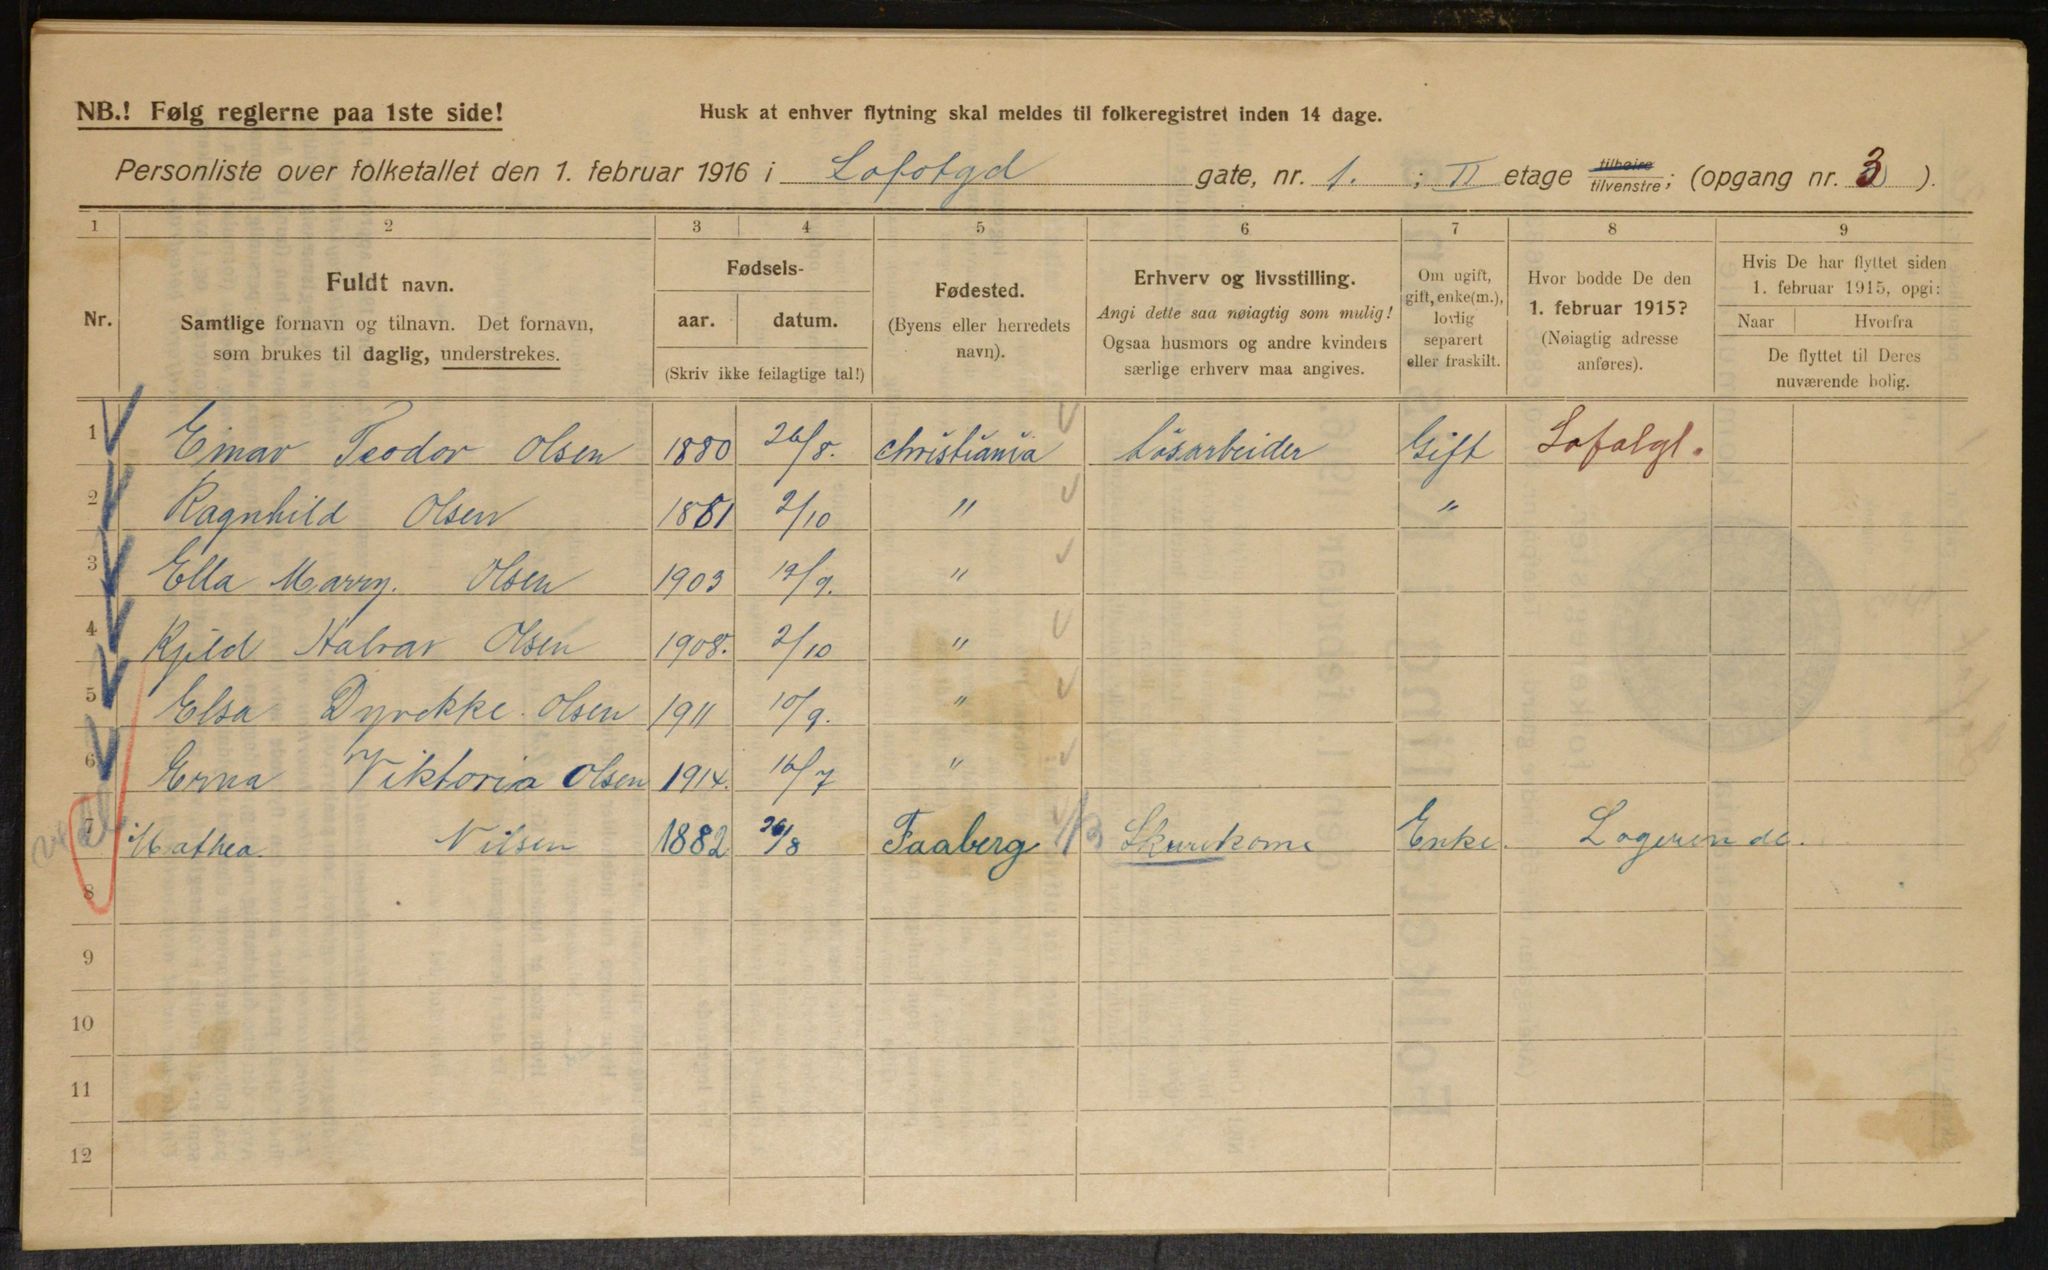 NB.! Følg reglerne paa 1ste side!
Husk at enhver flytning skal meldes til folkeregistret inden 14 dage.
Personliste over folketallet den 1. februar 1916 i Lofotgd gate, nr. 1. ; II etage tilhøire/tilvenstre; (opgang nr. 3 ).
1 2 3 4 5 6 7 8 9
Nr.
Fuldt navn.
Samtlige fornavn og tilnavn. Det fornavn,
som brukes til daglig, understrekes.
Fødsels-
aar. datum.
(Skriv ikke feilagtige tal!)
Fødested.
(Byens eller herredets
navn).
Erhverv og livsstilling.
Angi dette saa nøiagtig som mulig!
Ogsaa husmors og andre kvinders
særlige erhverv maa angives.
Om ugift,
gift, enke(m.),
lovlig
separert
eller fraskilt.
Hvor bodde De den
1. februar 1915?
(Nøiagtig adresse
anføres).
Hvis De har flyttet siden
1. februar 1915, opgi:
Naar Hvorfra
De flyttet til Deres
nuværende bolig.
1 Einar Teodor Olsen 1880 26/8. Christiania Løsarbeider Gift Lofotgt.
2 Ragnhild Olsen 1881 2/10 " "
3 Ella Marry. Olsen 1903 19/9. "
4 Kjeld Halvar Olsen 1908. 2/10 "
5 Elsa Dyvekke. Olsen 1911 10/9. "
6 Erna Viktoria Olsen 1914. 16/7 "
7 Mathea. Nilsen 1882 26/8 Faaberg Skurekone Enke. Logerende.
8
9
10
11
12